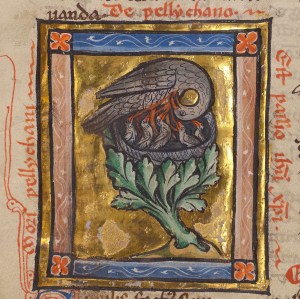 uanda De pellychano
Mors pellychani
Est passio ihu xpi.